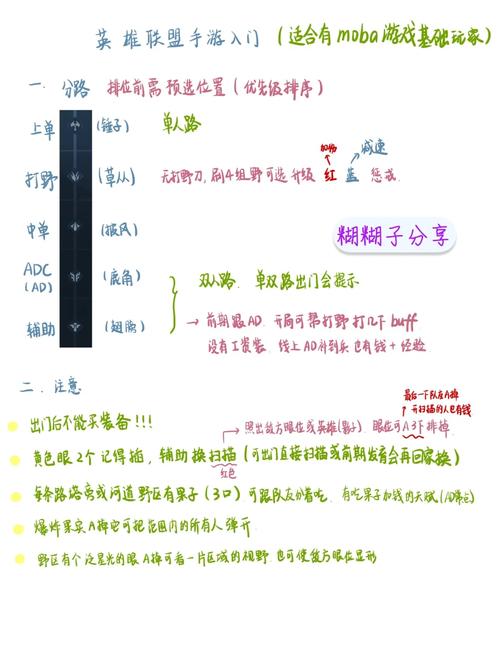 英雄联盟手游入门（适合有moba游戏基础玩家）
一. 分路 排位前需预选位置（优先级排序）
上单 （锤子） 单人路
加伤 减速
打野 （草丛） 无打野刀，刷4组野可选升级 红 蓝 惩戒.
中单 （披风）
糊糊子分享
ADC（AD） （鹿角） 双人路. 单双路出门会提示
辅助 （翅膀） → 前期跟AD. 开局可帮打野打几下buff
没有工资装. 线上AD补到兵也有钱+经验
二. 注意
最后一下队友A掉
开扫描的人也有钱
出门后不能买装备!!!
照出敌方眼位或英雄（影子）. 眼位可A3下排掉
黄色眼2个记得插，辅助换扫描（可出门直接扫描或前期发育会再回家换）
红色
每条路塔旁或河道野区有果子（3口）可跟队友分着吃. 有吃果子加钱的天赋
爆炸果实A掉它可把范围内的所有人弹开
野区有个泛星光的眼A掉可看一片区域的视野 也可使敌方眼位显形